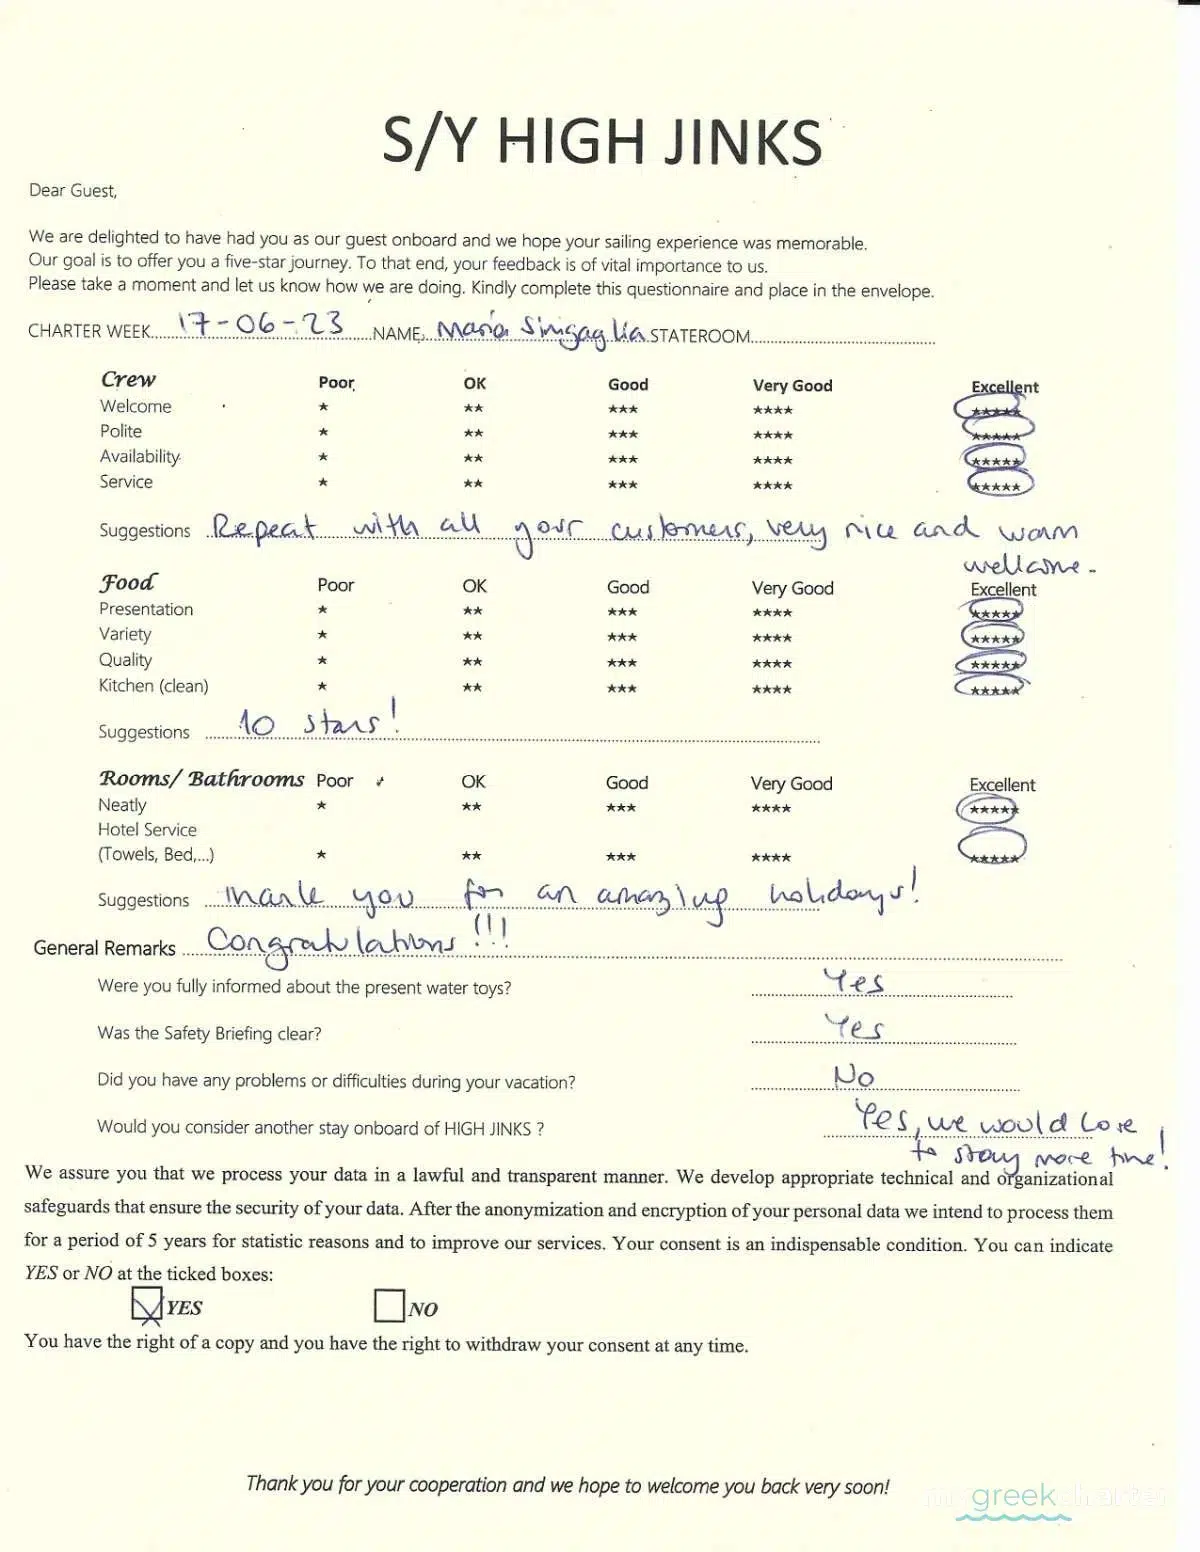 S/Y HIGH JINKS
Dear Guest,
We are delighted to have had you as our guest onboard and we hope your sailing experience was memorable.
Our goal is to offer you a five-star journey. To that end, your feedback is of vital importance to us.
Please take a moment and let us know how we are doing. Kindly complete this questionnaire and place in the envelope.
CHARTER WEEK 17-06-23 NAME, Maria Sinigaglia STATEROOM
Crew Poor OK Good Very Good Excellent
Welcome ★ ★★ ★★★ ★★★★ ★★★★★
Polite ★ ★★ ★★★ ★★★★ ★★★★★
Availability ★ ★★ ★★★ ★★★★ ★★★★★
Service ★ ★★ ★★★ ★★★★ ★★★★★
Suggestions Repeat with all your customers, very nice and warm
wellcome.
Food Poor OK Good Very Good Excellent
Presentation ★ ★★ ★★★ ★★★★ ★★★★★
Variety ★ ★★ ★★★ ★★★★ ★★★★★
Quality ★ ★★ ★★★ ★★★★ ★★★★★
Kitchen (clean) ★ ★★ ★★★ ★★★★ ★★★★★
Suggestions 10 stars!
Rooms/ Bathrooms Poor OK Good Very Good Excellent
Neatly ★ ★★ ★★★ ★★★★ ★★★★★
Hotel Service
(Towels, Bed,...) ★ ★★ ★★★ ★★★★ ★★★★★
Suggestions Thank you for an amazing holidays!
General Remarks Congratulations!!!
Were you fully informed about the present water toys? Yes
Was the Safety Briefing clear? Yes
Did you have any problems or difficulties during your vacation? No
Would you consider another stay onboard of HIGH JINKS ? Yes, we would love
to stay more time!
We assure you that we process your data in a lawful and transparent manner. We develop appropriate technical and organizational
safeguards that ensure the security of your data. After the anonymization and encryption of your personal data we intend to process them
for a period of 5 years for statistic reasons and to improve our services. Your consent is an indispensable condition. You can indicate
YES or NO at the ticked boxes:
YES NO
You have the right of a copy and you have the right to withdraw your consent at any time.
Thank you for your cooperation and we hope to welcome you back very soon!
my greek charter